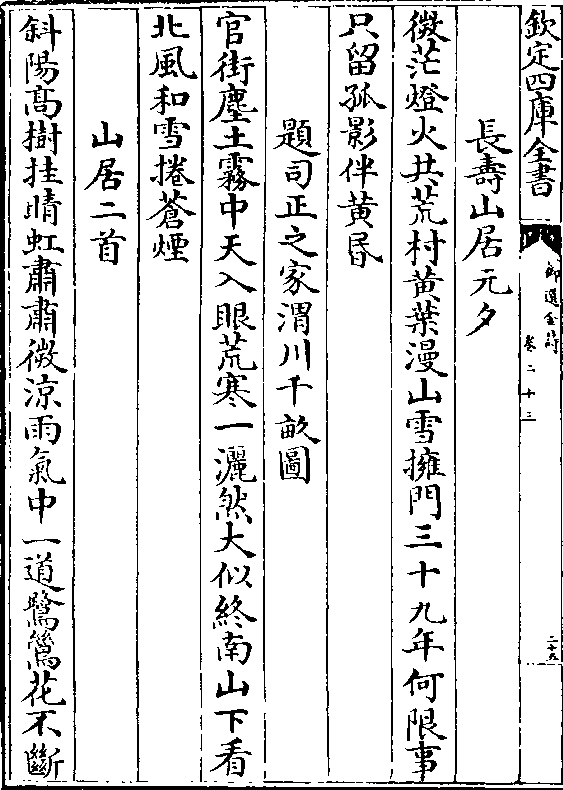 欽定四庫全書
御選金詩
卷二十三
二十五
長壽山居元夕
微茫燈火共荒村黄葉漫山雪擁門三十九年何限事
只留孤影伴黄昬
題司正之家渭川千畝圖
官街塵土霧中天入眼荒寒一灑然大似終南山下看
北風和雪捲蒼煙
山居二首
斜陽髙樹挂晴虹肅肅微涼雨氣中一道鷺鷥花不斷